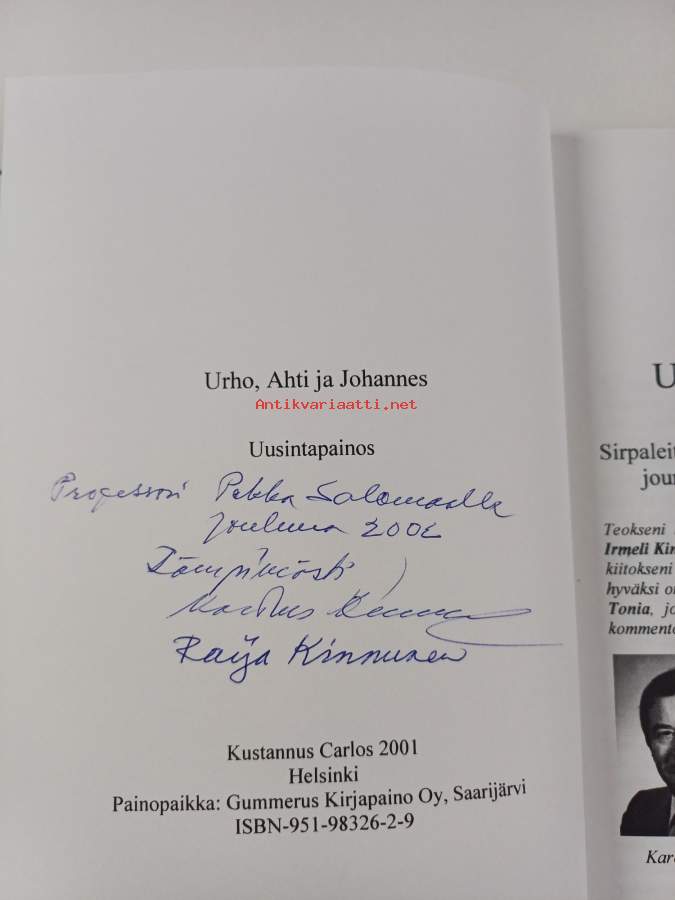 Urho, Ahti ja Johannes
Antikvariaatti.net
Uusintapainos
Professori Pekka Salomaalle
Jouluna 2002
Lämpimästi
Raija Kinnunen
Kustannus Carlos 2001
Helsinki
Painopaikka: Gummerus Kirjapaino Oy, Saarijärvi
ISBN-951-98326-2-9
U
Sirpaleit
jour
Teokseni
Irmeli Kin
kiitokseni
hyväksi o
Tonia, jo
kommento
Kar